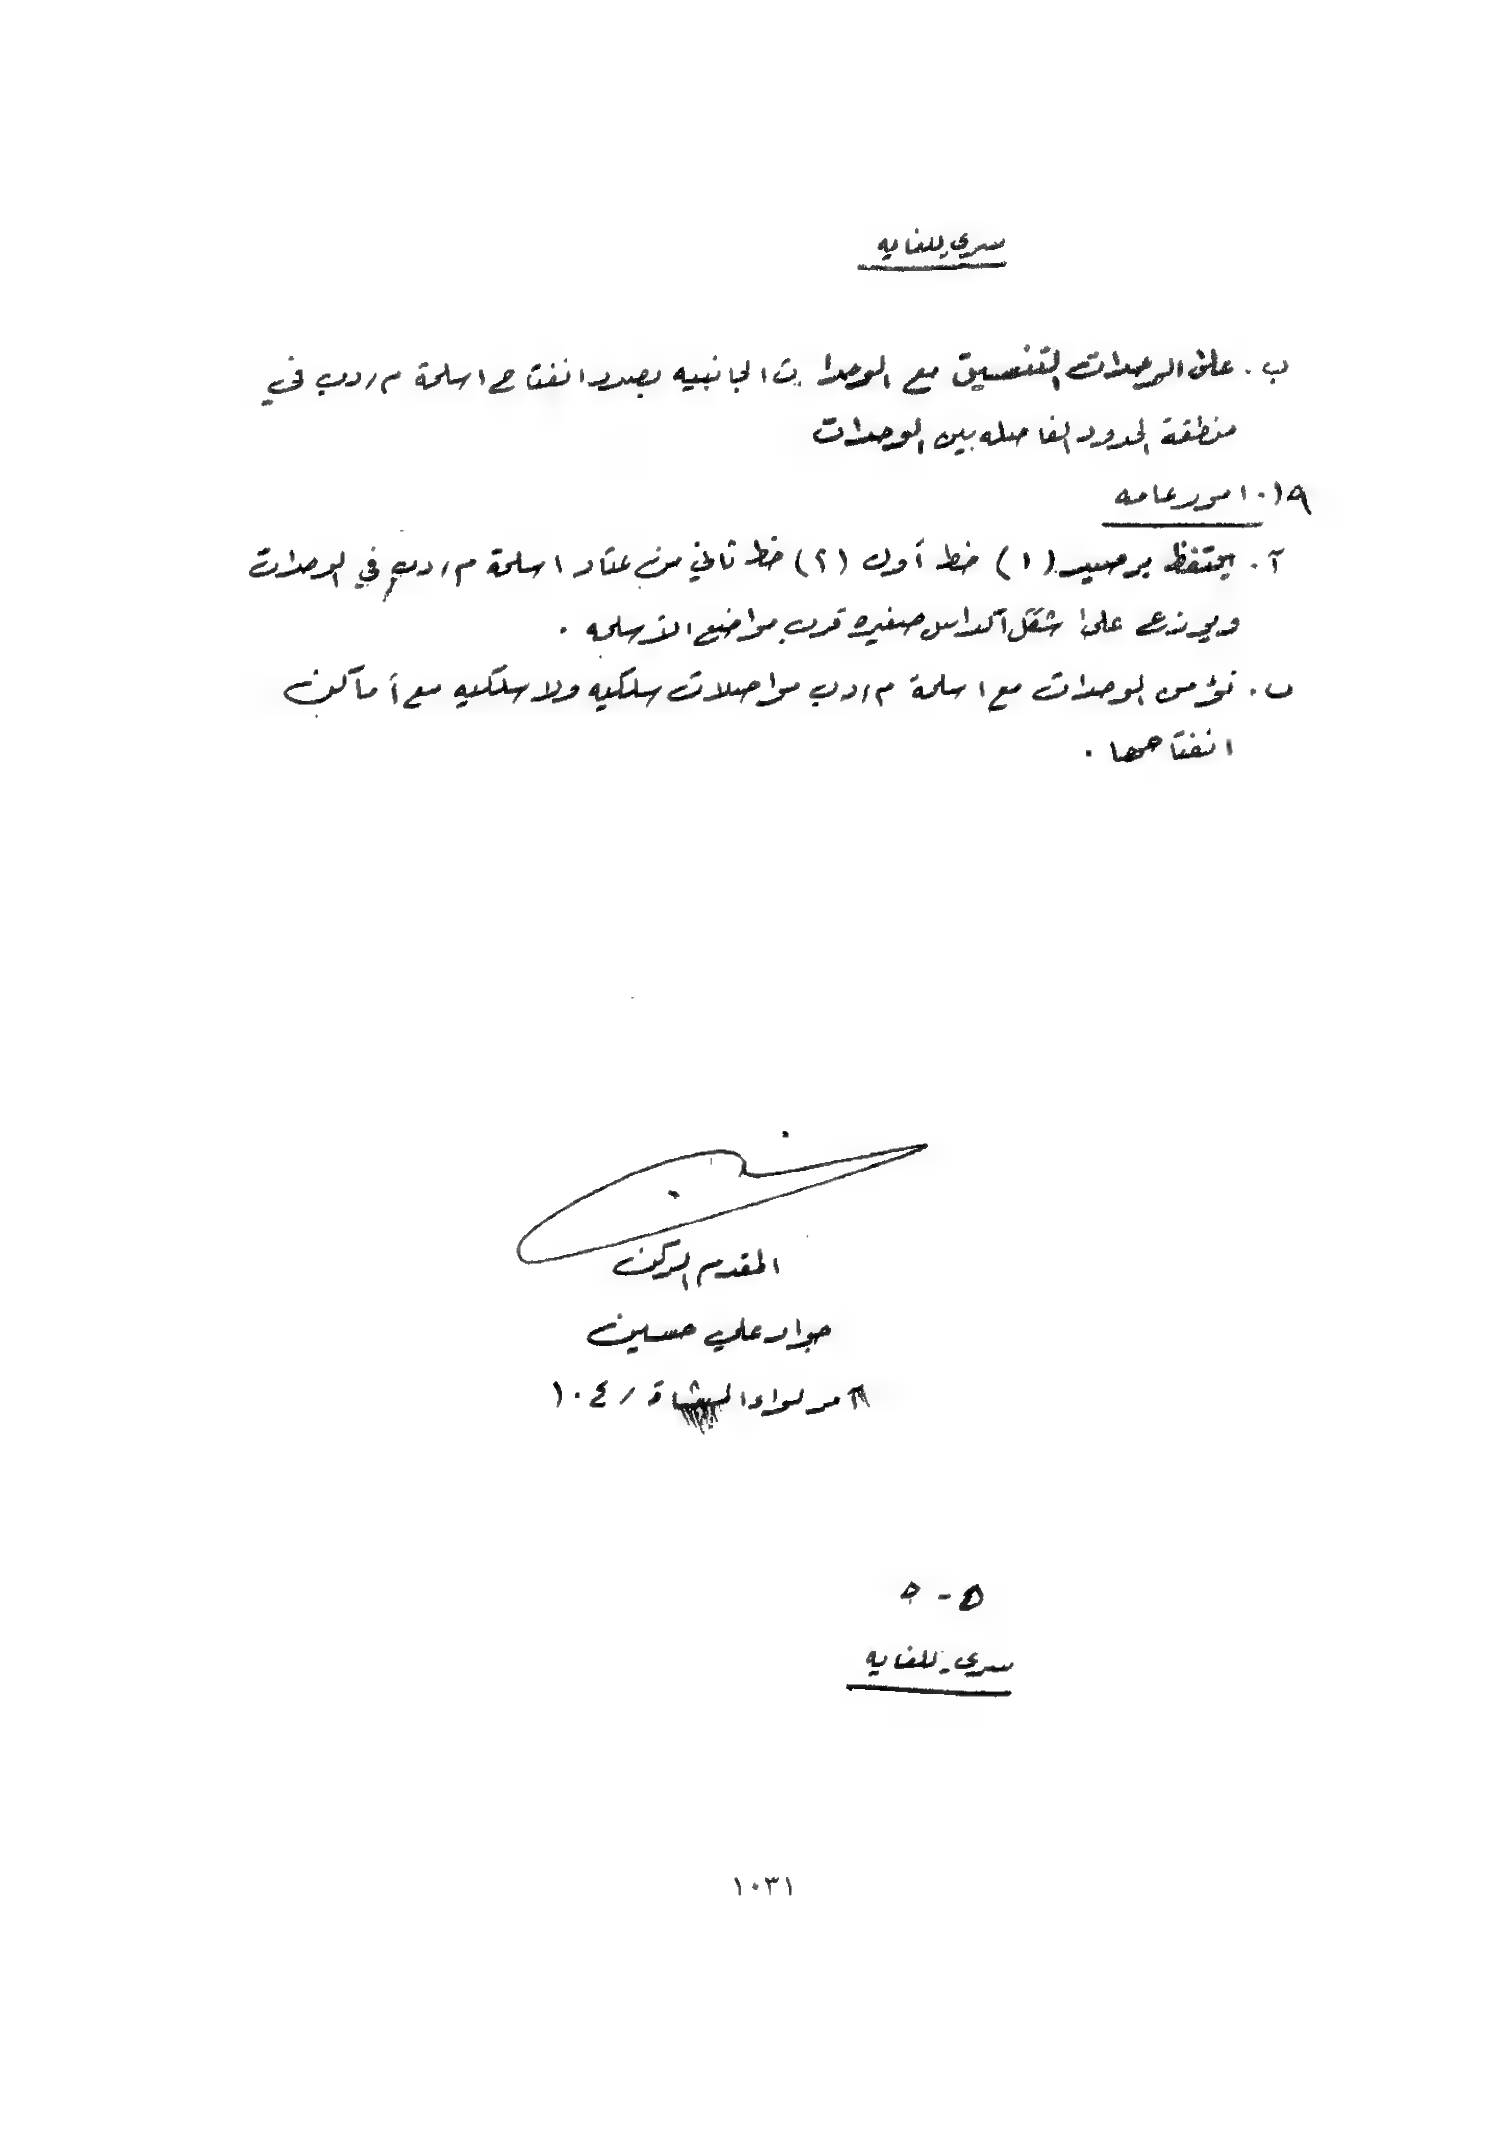 سري للغايه
ب. على الوحدات التنسيق مع الوحدات الجانبيه بصدد انفتاح اسلحة م/دب في
منطقة الحدود الفاصله بين الوحدات
١٥. امور عامه
آ. يحتفظ برصيد (١) خط أول (٢) خط ثاني من عتاد اسلحة م/دب في الوحدات
ويوزع على شكل اكداس صغيره قرب مواضع الاسلحه .
ب. تؤمن الوحدات مع اسلحة م/دب مواصلات سلكيه ولاسلكيه مع أماكن
انفتاحها .
المقدم الركن
جواد علي حسين
آمر لواء المشاة / ١٠٤
٥ - ٥
سري للغايه
١٠٣١